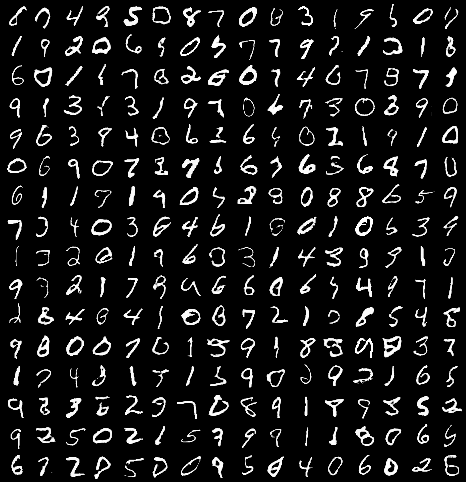 8 7 4 9 5 0 8 7 0 8 3 1 9 5 0
1 9 2 0 6 9 0 5 7 7 9 2 1 2 1 8
6 0 1 1 7 8 2 6 0 7 4 0 7 9 7 1
9 1 3 1 3 1 9 7 0 6 7 3 0 8 9 0
9 6 3 9 4 0 6 2 6 4 0 2 1 9 1 0
0 6 9 0 7 1 7 1 6 7 6 3 6 8 7 0
6 1 1 9 1 9 0 5 2 8 0 8 8 6 5 9
7 3 4 0 3 6 4 6 1 0 0 1 0 5 3 9
1 3 2 0 1 9 6 3 3 1 4 3 9 9 1 0
9 3 2 1 7 8 9 6 6 0 6 5 4 9 7 1
2 8 4 0 4 1 0 8 7 2 1 0 8 5 4 8
9 8 0 0 7 0 1 5 9 1 8 3 9 8 3 7
1 7 4 3 1 5 1 5 9 0 2 9 2 1 6 5
9 8 3 5 2 9 7 0 8 9 1 8 9 3 5 2
9 2 5 0 2 1 5 7 9 9 1 1 8 0 6 5
6 7 2 0 5 0 0 9 5 8 4 0 6 0 2 5